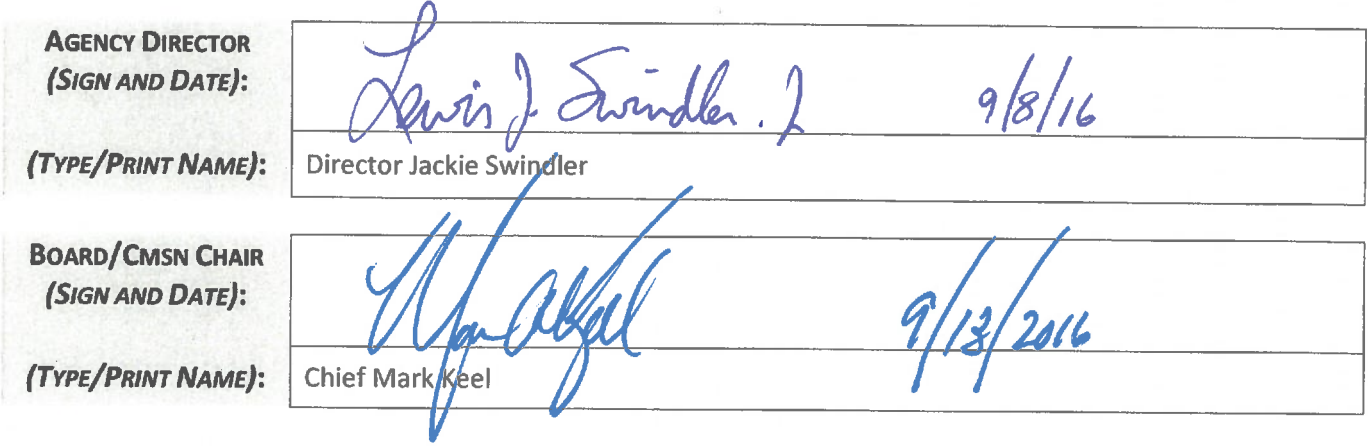 AGENCY DIRECTOR
(SIGN AND DATE):
Lewis J. Swindler. J 9/8/16
(TYPE/PRINT NAME): Director Jackie Swindler
BOARD/CMSN CHAIR
(SIGN AND DATE):
Mark Keel 9/13/2016
(TYPE/PRINT NAME): Chief Mark Keel